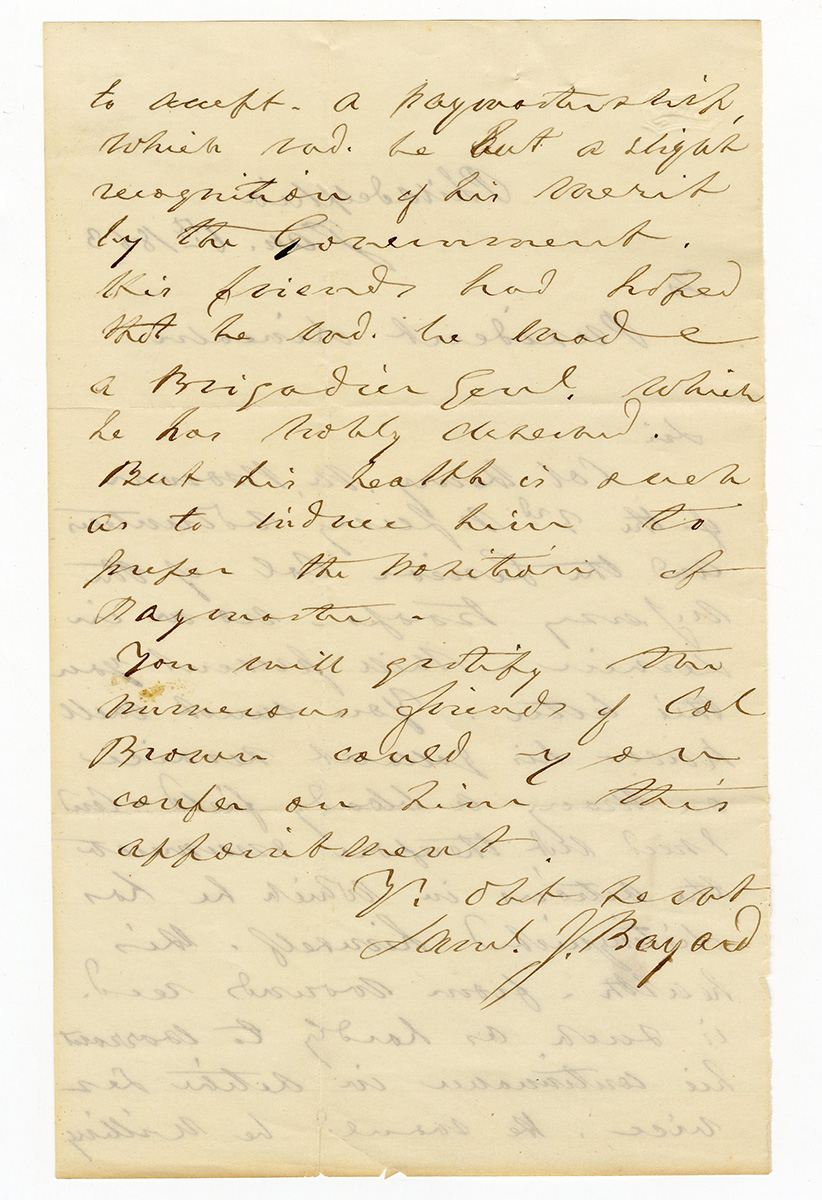 to accept - a paymastership,
which wd. be but a slight
recognition of his merit
by the Government.
His friends had hoped
that he wd. be made
a Brigadier Genl. which
he has nobly deserved.
But his health is such
as to induce him to
prefer the position of
Paymaster -
You will gratify the
numerous friends of Col
Brown could you
confer on him this
appointment.
Yr. obt servt
Saml. J. Bayard